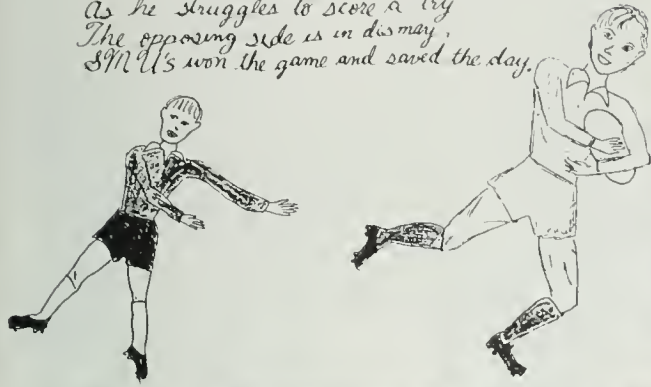 As he struggles to score a try
The opposing side is in dismay,
SMU's won the game and saved the day.